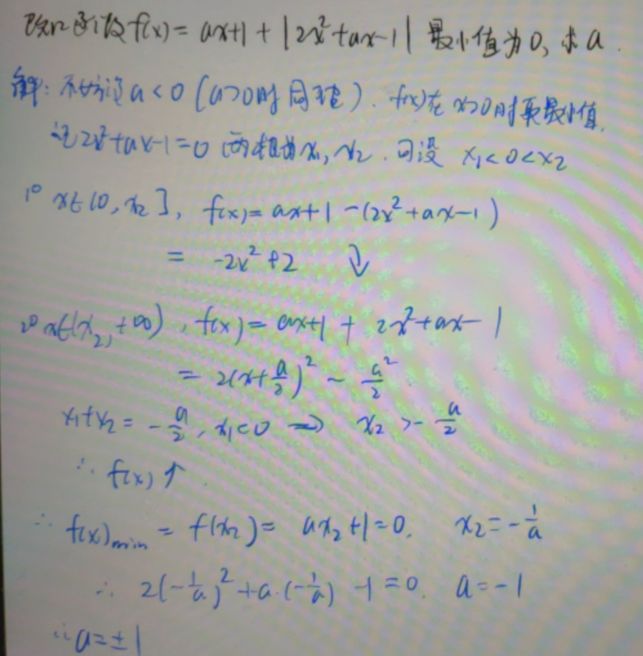 已知函数f(x)=ax+1+|2x²+ax-1| 最小值为0,求a.
解:不妨设a<0(a>0时同理).f(x)在x>0时取最小值.
记2x²+ax-1=0 两根为x₁,x₂.可设 x₁<0<x₂
1° x∈(0,x₂],f(x)=ax+1-(2x²+ax-1)
= -2x²+2 ↓
2° x∈(x₂,+∞),f(x)=ax+1+2x²+ax-1
=2(x+a/2)²-a²/2
x₁+x₂=-a/2,x₁<0 ⇒ x₂>-a/2
∴ f(x)↑
∴ f(x)min=f(x₂)=ax₂+1=0. x₂=-1/a
∴ 2(-1/a)²+a·(-1/a)-1=0. a=-1
∴a=±1